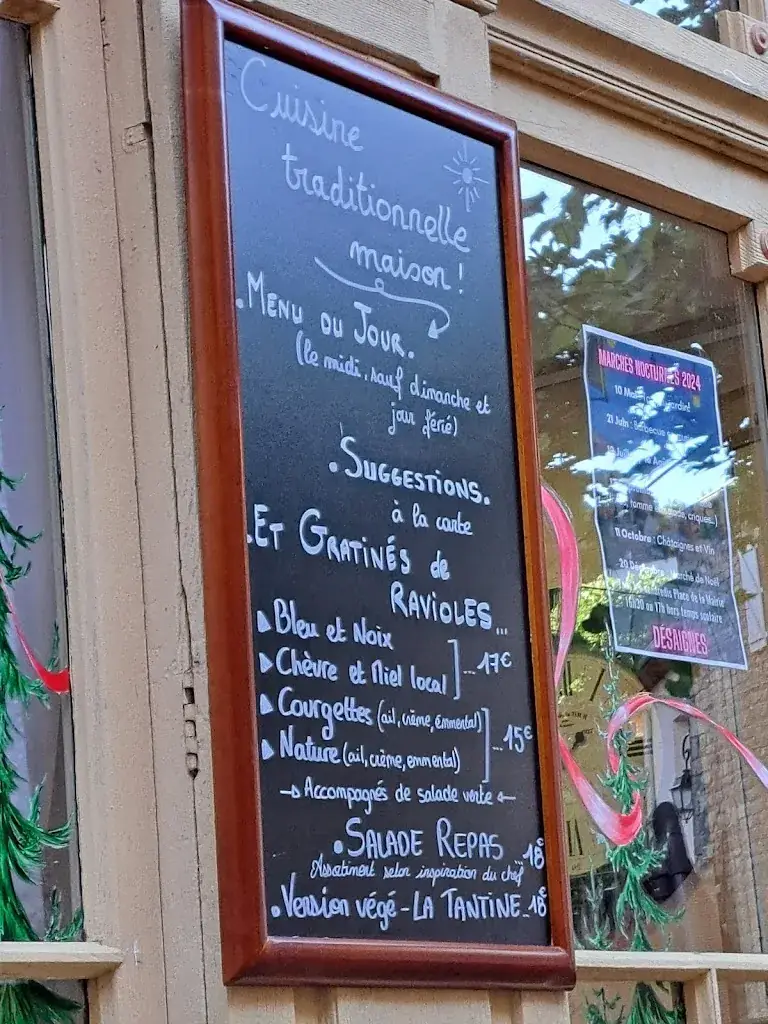 Cuisine
traditionnelle
maison !
. MENU DU JOUR.
(le midi, sauf dimanche et
jour férié)
. SUGGESTIONS.
à la carte
. ET GRATINÉS de
RAVIOLES...
Bleu et Noix
Chèvre et Miel local ]...17€
Courgettes (ail, crème, emmental)
Nature (ail, crème, emmental) ]...15€
→ Accompagnés de salade verte ←
. SALADE REPAS 18€
Assortiment selon inspiration du chef
. Version végé - LA TANTINE..18€
MARCHÉS NOCTURNES 2024
10
21 Juin :
criques...)
11 Octobre : Châtaignes et Vin
20 Décembre : Marché de Noël
Place de la Mairie
16h30 au 17h hors temps scolaire
DÉSAIGNES